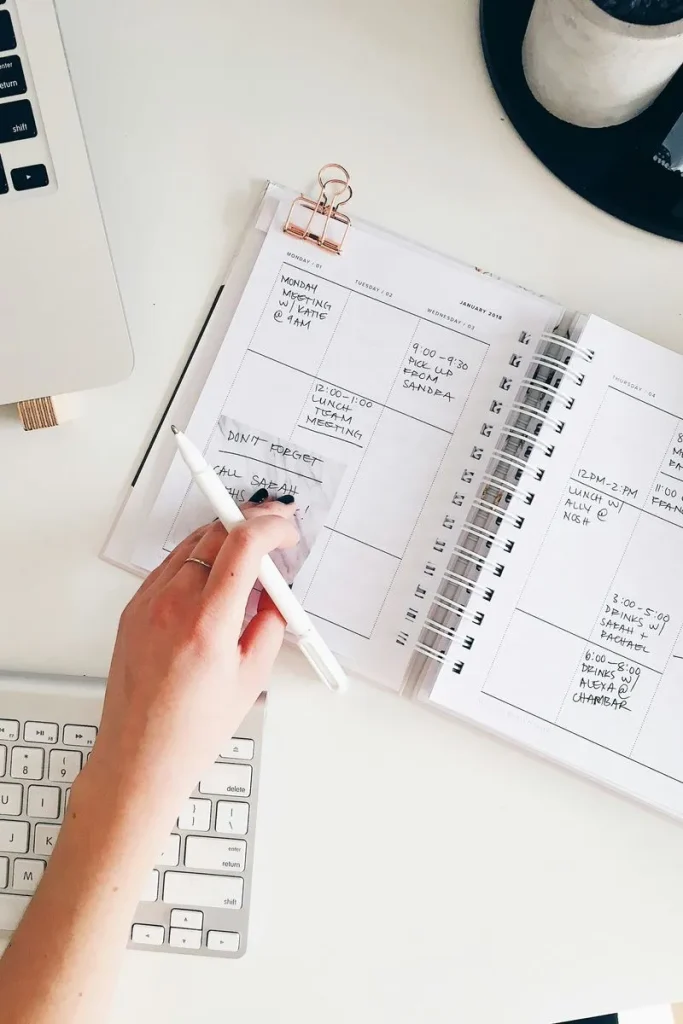 MONDAY / 01
MONDAY
MEETING
W/ KATIE
@ 9AM
TUESDAY / 02
12:00-1:00
LUNCH
TEAM
MEETING
JANUARY 2018
WEDNESDAY / 03
9:00-9:30
PICK UP
FROM
SANDRA
DON'T FORGET
CALL SARAH
THIS
!
THURSDAY / 04
12PM-2:PM
LUNCH W/
ALLY @
NOSH
11:00
3:00-5:00
DRINKS W/
SARAH +
RACHAEL
6:00-8:00
DRINKS W/
ALEXA @
CHAMBAR
enter
return
shift
8
9
U
I
J
K
M
delete
enter
return
shift